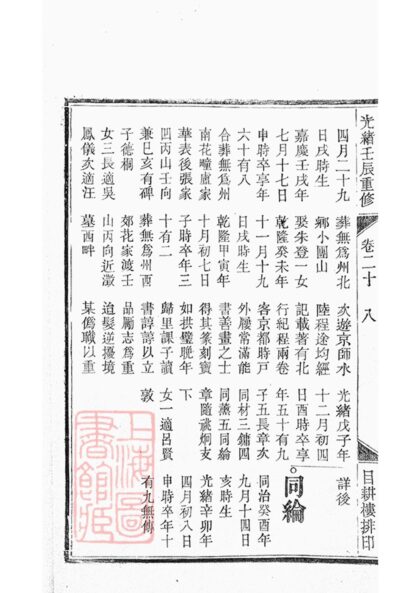 光緒壬辰重修
卷二十
八
目耕樓排印
四月二十九
日戌時生
嘉慶壬戌年
七月十七日
申時卒享年
六十有八
合葬無爲州
南花疃盧家
華表後張家
四丙山壬向
兼巳亥有碑
子德桐
女三長適吳
鳳儀次適汪
葬無爲州北
鄉小團山
娶朱登一女
乾隆癸未年
十一月十九
日戌時生
乾隆甲寅年
十月初七日
子時卒年三
十有二
葬無爲州西
郊花家渡壬
山丙向近瀠
墓西畔
次遊京師水
陸程途均經
記載著有北
行紀程兩卷
客京都時戸
外屨常滿能
書善畫之士
得其篆刻寶
如拱璧晚年
歸里課子讀
書諄諄以立
品勵志爲重
迨髮逆擾境
某僞職以重
光緒戊子年
十二月初四
日酉時卒享
年五十有九
子五長章次
同材三鏞四
同蒸五同綸
章隨祧炯支
下
女一適呂賢
敦
詳後
同綸
同治癸酉年
九月十四日
亥時生
光緒辛卯年
四月初八日
申時卒年十
有九無傳
上海圖
書館藏